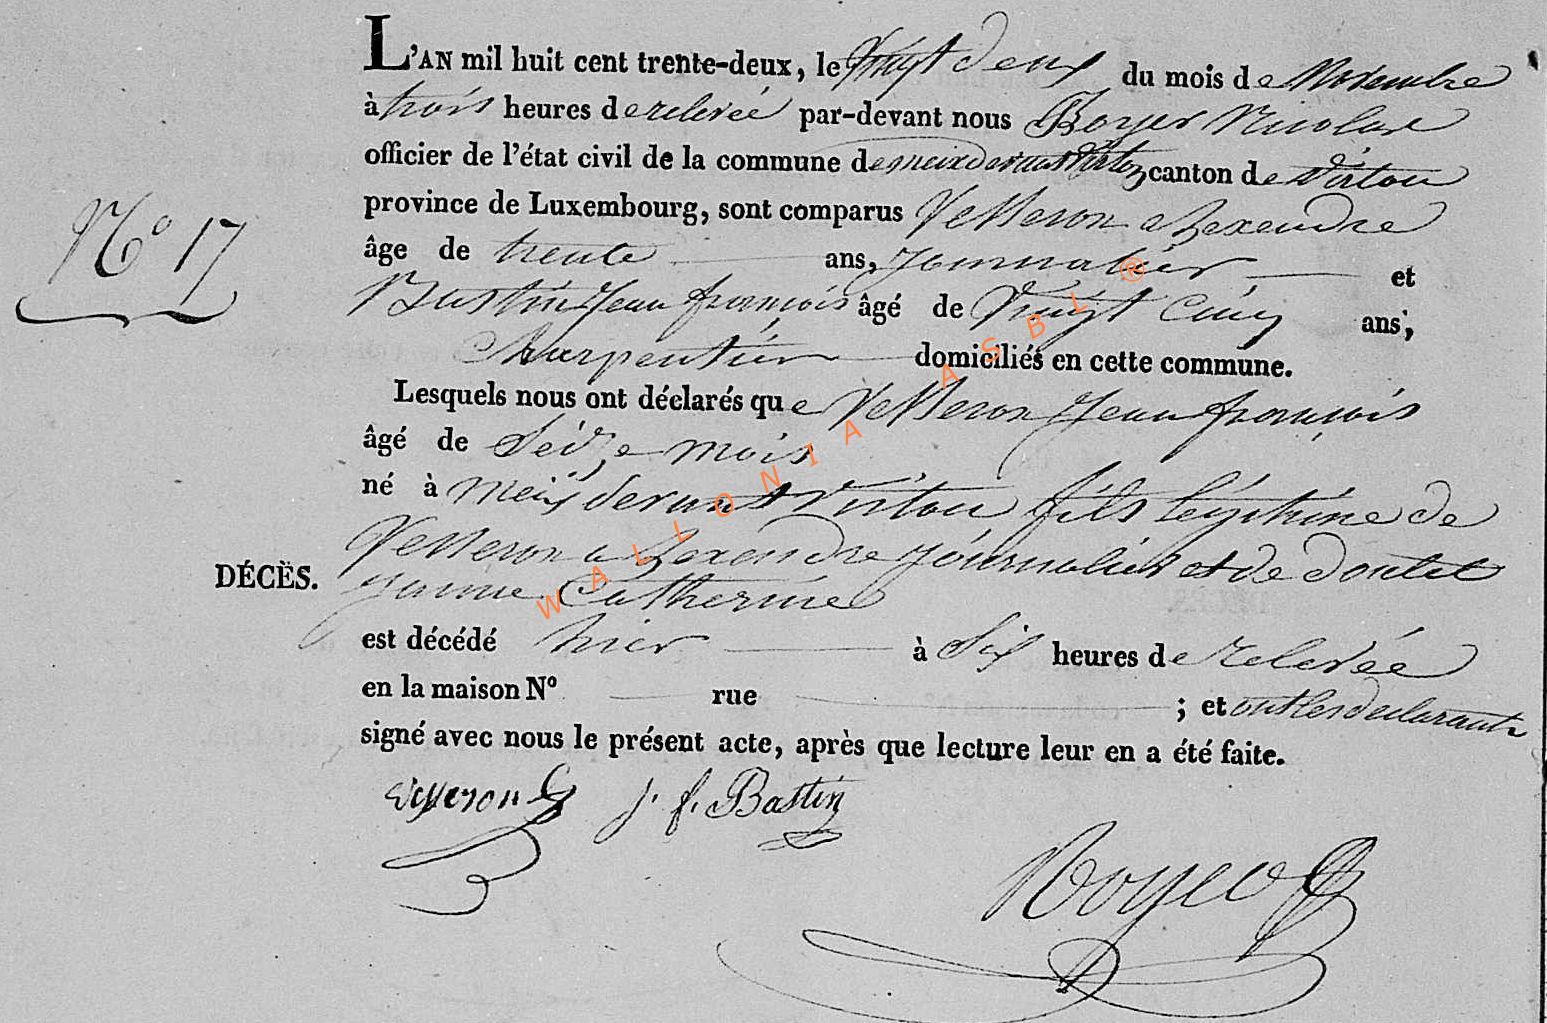 L'AN mil huit cent trente-deux, le Vingt deux du mois de Novembre
à trois heures de relevée par-devant nous Royer Nicolas
officier de l'état civil de la commune de meix devant Virton canton de Virton
province de Luxembourg, sont comparus alexendre
âge de trente ans, Journalier et
Bastin Jean françois âgé de Vingt Cinq ans,
Charpentier domiciliés en cette commune.
Lesquels nous ont déclarés que Jean françois
âgé de Seize mois
né à Meix devant Virton fils légitime de
alexendre Journalier et de
DÉCÈS.
Catherine
est décédé hier à Six heures de relevée
en la maison Nº rue ; et ont les declarants
signé avec nous le présent acte, après que lecture leur en a été faite.
Nº 17
j. f. Bastin
Royer
WALLONIA ASBL ®